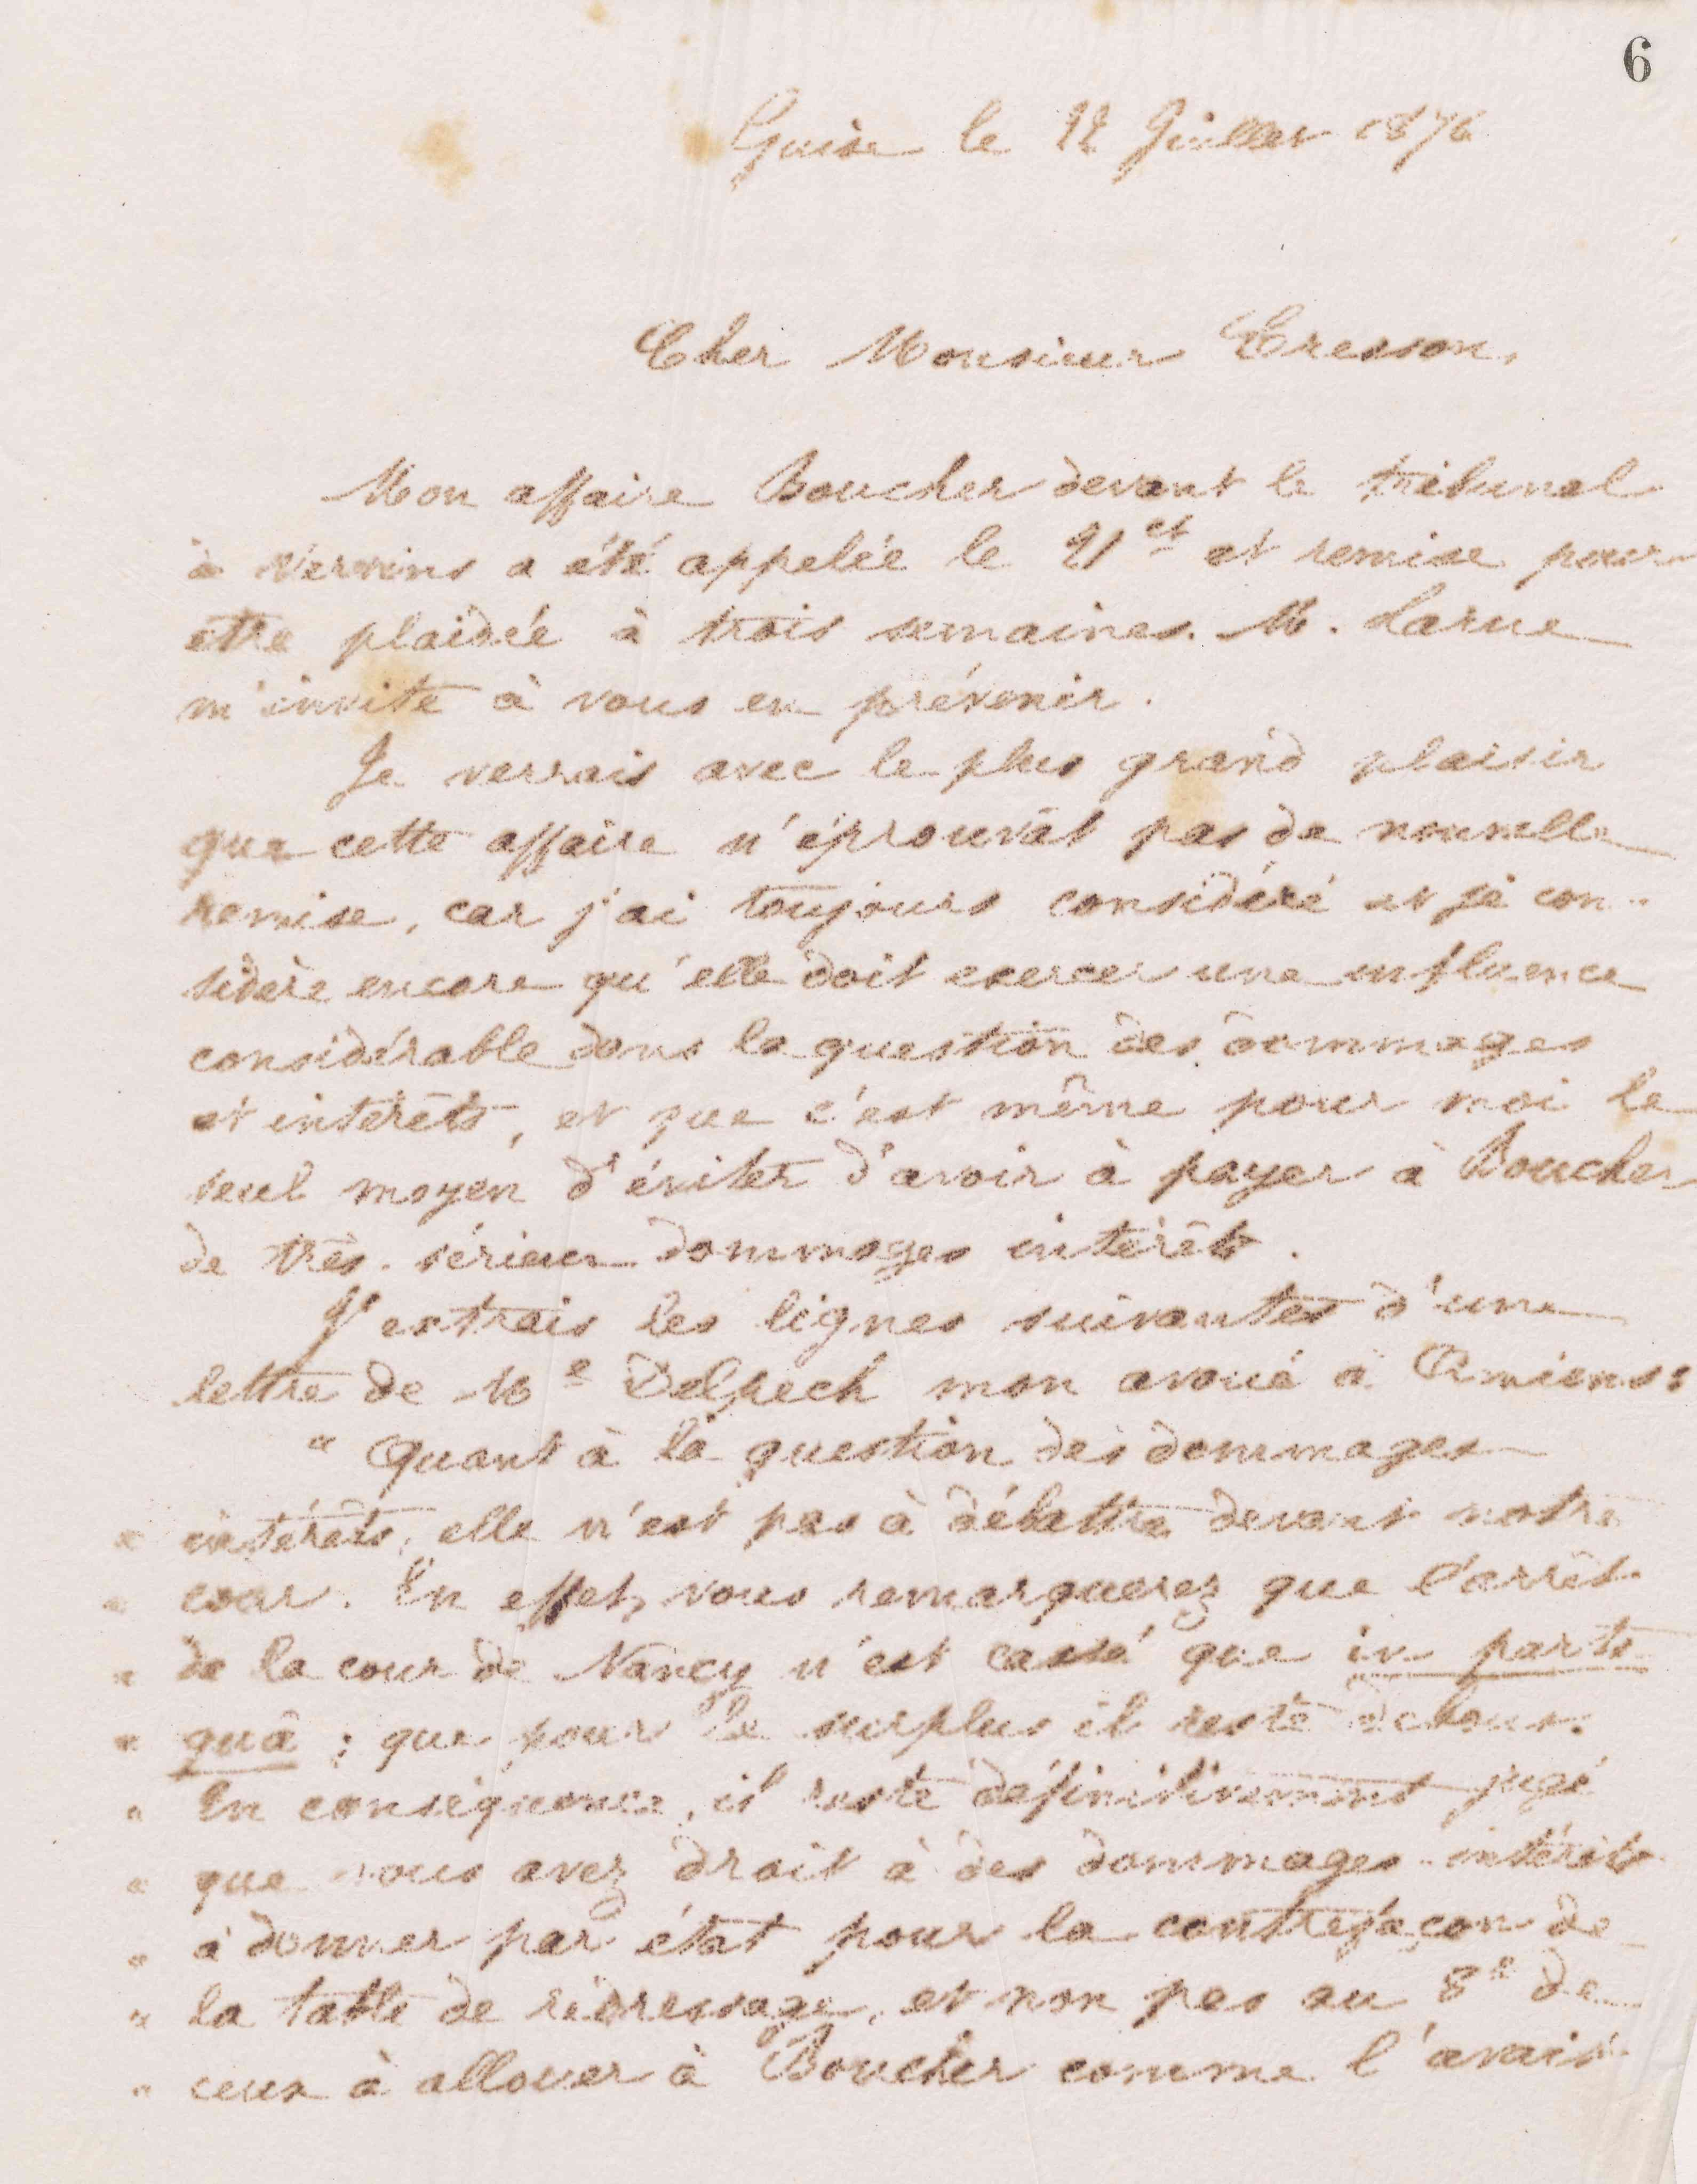 6
Guise le 22 Juillet 1876
Cher Monsieur Cresson,
Mon affaire Boucher devant le tribunal
à Vervins a été appelée le 21 ct et remise pour
être plaidée à trois semaines. M. Larue
m'invite à vous en prévenir.
Je verrais avec le plus grand plaisir
que cette affaire n'éprouvât pas de nouvelle
remise, car j'ai toujours considéré et je con-
sidère encore qu'elle doit exercer une influence
considérable dans la question des dommages
et intérêts, et que c'est même pour moi le
seul moyen d'éviter d'avoir à payer à Boucher
de très-sérieux dommages intérêts.
J'extrais les lignes suivantes d'une
lettre de Me Delpech mon avoué à Amiens:
" Quant à la question des dommages
" intérêts, elle n'est pas à débattre devant notre
" cour. En effet, vous remarquerez que l'arrêt
" de la cour de Nancy n'est cassé que in parte
" quâ ; que pour le surplus il reste debout.
" En conséquence, il reste définitivement jugé
" que vous avez droit à des dommages-intérêts
" à donner par état pour la contrefaçon de
" la table de redressage, et non pas au 8e de
" ceux à allouer à Boucher comme l'avait